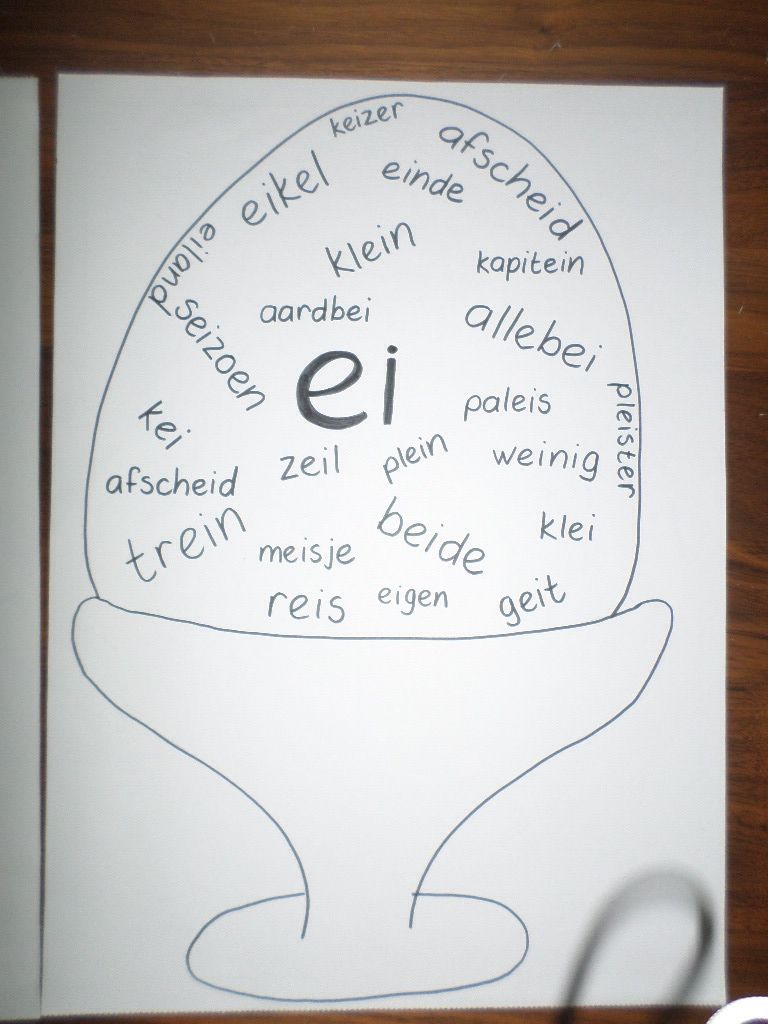 keizer
afscheid
einde
eikel
eiland
klein
kapitein
aardbei
allebei
seizoen
ei
paleis
pleister
kei
zeil
plein
weinig
afscheid
trein
meisje
beide
klei
reis
eigen
geit